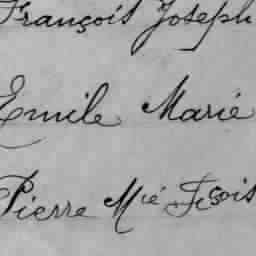 François Joseph
Emile Marié
Pierre Mié Fçois